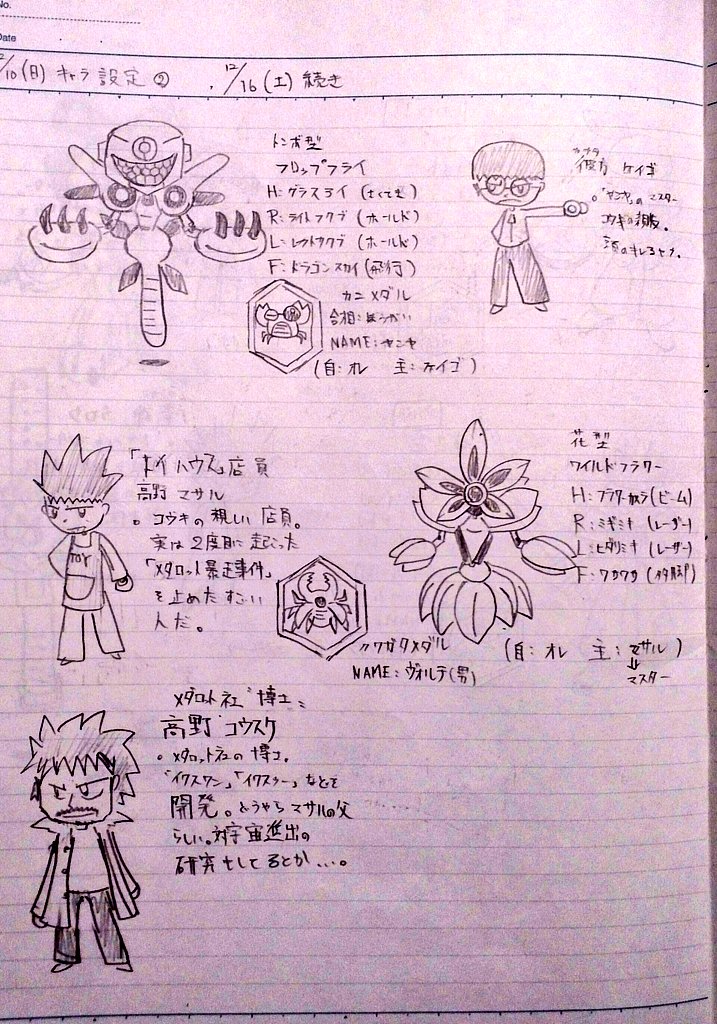 No.
Date
12/10(日) キャラ設定② 12/16(土) 続き
トンボ型
フロップフライ
H:グラスライ(さくてき)
R:ライトフクブ(ホールド)
L:レフトフクブ(ホールド)
F:ドラゴンスカイ(飛行)
カニメダル
NAME:ヤンヤ
(自:オレ 主:ケイゴ)
彼方 ケイゴ
。「ヤンヤ」のマスター
コウキの親友。
頭のキレるヤツ。
「トイハウス」店員
高野 マサル
。コウキの親しい店員。
実は2度目に起こった
「メダロット暴走事件」
を止めたすごい
人だ。
TOY
クワガタメダル
NAME:ヴォルテ(男)
花型
ワイルドフラワー
H:フラワーカメラ(ビーム)
R:ミギミキ(レーザー)
L:ヒダリミキ(レーザー)
F:ワカワカ(多脚)
(自:オレ 主:マサル)
⇓
マスター
メダロット社 博士
高野 コウスケ
。メダロット社の博士。
「イクスワン」「イクスツー」などを
開発。どうやらマサルの父
らしい。対宇宙進出の
研究をしてるとか…。